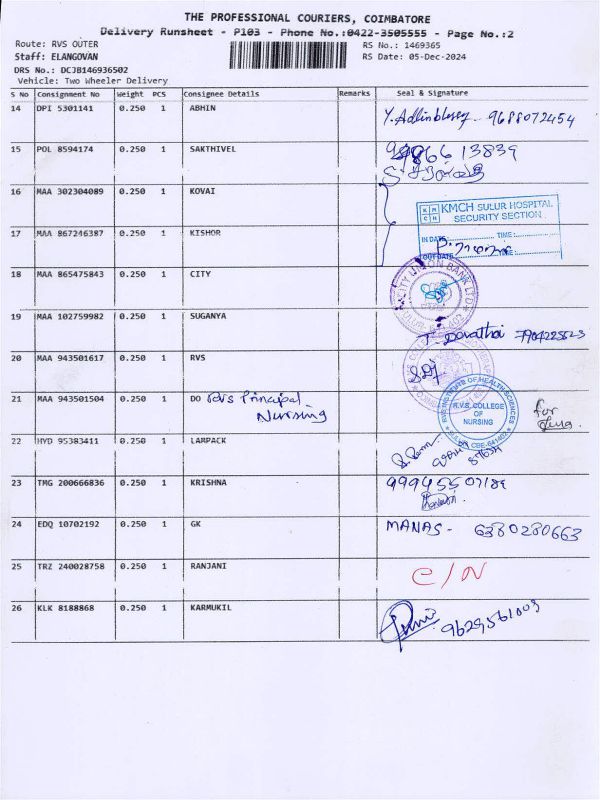 THE PROFESSIONAL COURIERS, COIMBATORE
Delivery Runsheet - P103 - Phone No.:0422-3505555 - Page No.:2
Route: RVS OUTER
Staff: ELANGOVAN
DRS No.: DCJB146936502
Vehicle: Two Wheeler Delivery
RS No.: 1469365
RS Date: 05-Dec-2024
S No Consignment No Weight PCS Consignee Details Remarks Seal & Signature
14 DPI 5301141 0.250 1 ABHIN 9688072454
15 POL 8594174 0.250 1 SAKTHIVEL
16 MAA 302304089 0.250 1 KOVAI
KMCH SULUR HOSPITAL
SECURITY SECTION
IN DATE: TIME:
OUT DATE TIME:
17 MAA 867246387 0.250 1 KISHOR
18 MAA 865475843 0.250 1 CITY
CITY UNION BANK LTD
19 MAA 102759982 0.250 1 SUGANYA
20 MAA 943501617 0.250 1 RVS
21 MAA 943501504 0.250 1 DO RVS Principal
Nursing
R.V.S. COLLEGE
OF
NURSING
for
22 HYD 95383411 0.250 1 LAMPACK
23 TMG 200666836 0.250 1 KRISHNA
24 EDQ 10702192 0.250 1 GK MANAS - 6380280663
25 TRZ 240028758 0.250 1 RANJANI C/N
26 KLK 8188868 0.250 1 KARMUKIL 9629561003